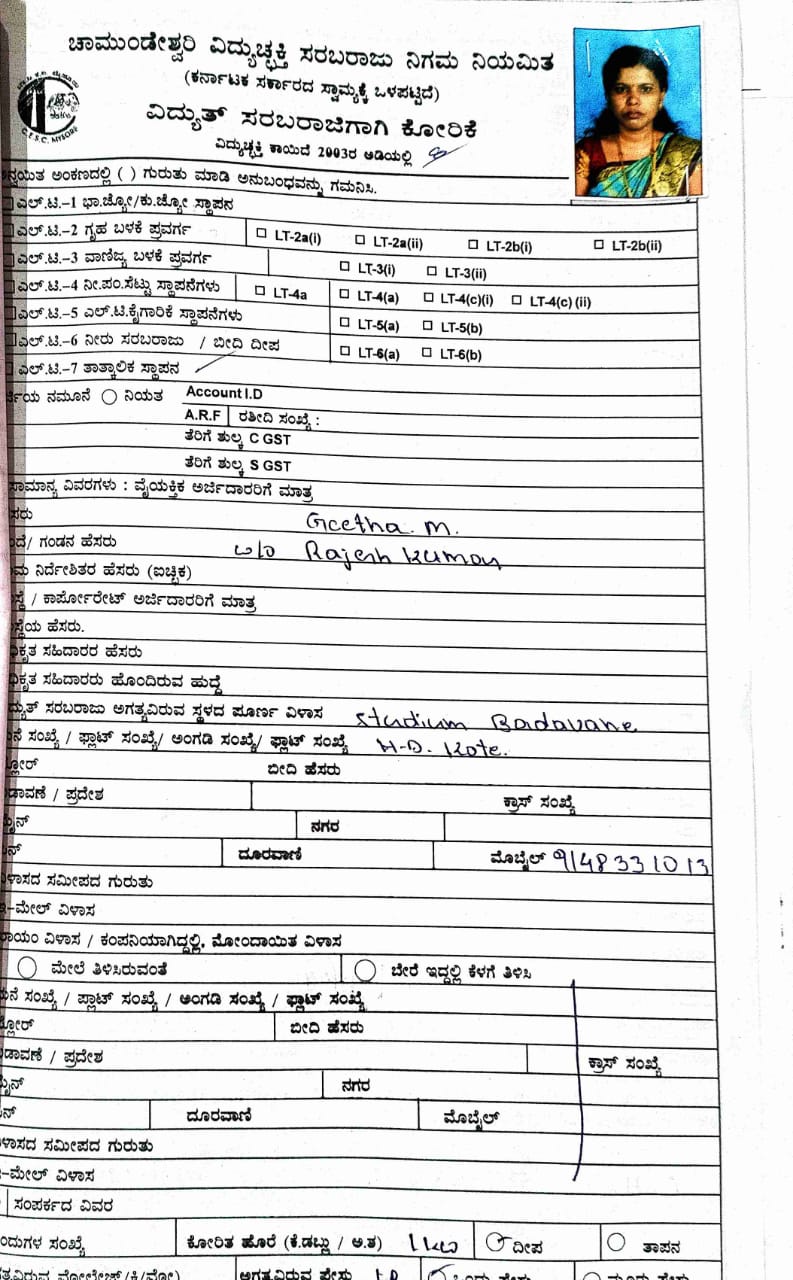 ಚಾಮುಂಡೇಶ್ವರಿ ವಿದ್ಯುಚ್ಛಕ್ತಿ ಸರಬರಾಜು ನಿಗಮ ನಿಯಮಿತ
(ಕರ್ನಾಟಕ ಸರ್ಕಾರದ ಸ್ವಾಮ್ಯಕ್ಕೆ ಒಳಪಟ್ಟಿದೆ)
C.E.S.C. MYSORE
ವಿದ್ಯುತ್ ಸರಬರಾಜಿಗಾಗಿ ಕೋರಿಕೆ
ವಿದ್ಯುಚ್ಛಕ್ತಿ ಕಾಯಿದೆ 2003ರ ಅಡಿಯಲ್ಲಿ
ನ್ವಯಿತ ಅಂಕಣದಲ್ಲಿ ( ) ಗುರುತು ಮಾಡಿ ಅನುಬಂಧವನ್ನು ಗಮನಿಸಿ.
ಎಲ್.ಟಿ.–1 ಭಾ.ಜ್ಯೋ/ಕು.ಜ್ಯೋ ಸ್ಥಾಪನ
ಎಲ್.ಟಿ.–2 ಗೃಹ ಬಳಕೆ ಪ್ರವರ್ಗ LT-2a(i) LT-2a(ii) LT-2b(i) LT-2b(ii)
ಎಲ್.ಟಿ.–3 ವಾಣಿಜ್ಯ ಬಳಕೆ ಪ್ರವರ್ಗ LT-3(i) LT-3(ii)
ಎಲ್.ಟಿ.–4 ನೀ.ಪಂ.ಸೆಟ್ಟು ಸ್ಥಾಪನೆಗಳು LT-4a LT-4(a) LT-4(c)(i) LT-4(c) (ii)
ಎಲ್.ಟಿ.–5 ಎಲ್.ಟಿ.ಕೈಗಾರಿಕೆ ಸ್ಥಾಪನೆಗಳು LT-5(a) LT-5(b)
ಎಲ್.ಟಿ.–6 ನೀರು ಸರಬರಾಜು / ಬೀದಿ ದೀಪ LT-6(a) LT-6(b)
ಎಲ್.ಟಿ.–7 ತಾತ್ಕಾಲಿಕ ಸ್ಥಾಪನ
ರ್ಜಿಯ ನಮೂನೆ ನಿಯತ Account I.D
A.R.F ರಶೀದಿ ಸಂಖ್ಯೆ :
ತೆರಿಗೆ ಶುಲ್ಕ C GST
ತೆರಿಗೆ ಶುಲ್ಕ S GST
ಸಾಮಾನ್ಯ ವಿವರಗಳು : ವೈಯಕ್ತಿಕ ಅರ್ಜಿದಾರರಿಗೆ ಮಾತ್ರ
ಸರು Geetha. M.
ದೆ/ ಗಂಡನ ಹೆಸರು w/o Rajesh Kumar
ಮ ನಿರ್ದೇಶಿತರ ಹೆಸರು (ಐಚ್ಛಿಕ)
ಸ್ಥೆ / ಕಾರ್ಪೋರೇಟ್ ಅರ್ಜಿದಾರರಿಗೆ ಮಾತ್ರ
ಸ್ಥೆಯ ಹೆಸರು.
ಧಿಕೃತ ಸಹಿದಾರರ ಹೆಸರು
ಧಿಕೃತ ಸಹಿದಾರರು ಹೊಂದಿರುವ ಹುದ್ದೆ
ದ್ಯುತ್ ಸರಬರಾಜು ಅಗತ್ಯವಿರುವ ಸ್ಥಳದ ಪೂರ್ಣ ವಿಳಾಸ Stadium Badavane
ನೆ ಸಂಖ್ಯೆ / ಪ್ಲಾಟ್ ಸಂಖ್ಯೆ/ ಅಂಗಡಿ ಸಂಖ್ಯೆ/ ಫ್ಲಾಟ್ ಸಂಖ್ಯೆ H.D. Kote.
ಲ್ಲೋರ್ ಬೀದಿ ಹೆಸರು
ಡಾವಣೆ / ಪ್ರದೇಶ ಕ್ರಾಸ್ ಸಂಖ್ಯೆ
ನಗರ
ನ್ ದೂರವಾಣಿ ಮೊಬೈಲ್ 9148331013
ವಿಳಾಸದ ಸಮೀಪದ ಗುರುತು
ಇ–ಮೇಲ್ ವಿಳಾಸ
ರಾಯಂ ವಿಳಾಸ / ಕಂಪನಿಯಾಗಿದ್ದಲ್ಲಿ, ನೋಂದಾಯಿತ ವಿಳಾಸ
ಮೇಲೆ ತಿಳಿಸಿರುವಂತೆ ಬೇರೆ ಇದ್ದಲ್ಲಿ ಕೆಳಗೆ ತಿಳಿಸಿ
ನೆ ಸಂಖ್ಯೆ / ಪ್ಲಾಟ್ ಸಂಖ್ಯೆ / ಅಂಗಡಿ ಸಂಖ್ಯೆ / ಫ್ಲಾಟ್ ಸಂಖ್ಯೆ
ಲ್ಲೋರ್ ಬೀದಿ ಹೆಸರು
ಡಾವಣೆ / ಪ್ರದೇಶ ಕ್ರಾಸ್ ಸಂಖ್ಯೆ
ನಗರ
ನ್ ದೂರವಾಣಿ ಮೊಬೈಲ್
ವಿಳಾಸದ ಸಮೀಪದ ಗುರುತು
–ಮೇಲ್ ವಿಳಾಸ
ಸಂಪರ್ಕದ ವಿವರ
ಂದುಗಳ ಸಂಖ್ಯೆ ಕೋರಿತ ಹೊರೆ (ಕೆ.ಡಬ್ಲು / ಅ.ತ) 1kw ದೀಪ ತಾಪನ